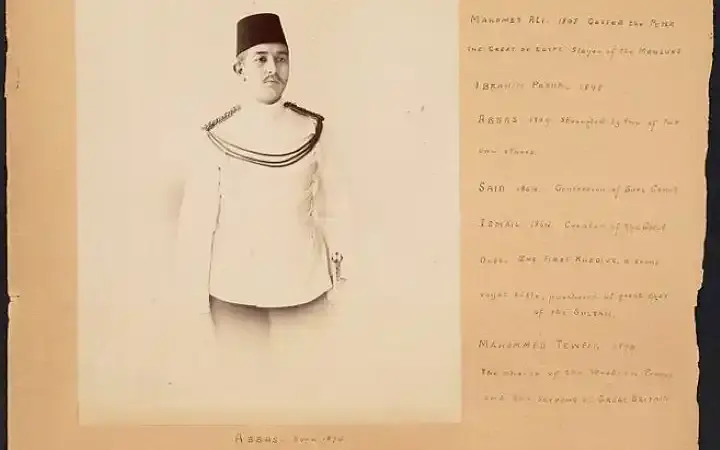 MAHOMET ALI. 1805 Called the Peter
the Great of Egypt. Slayer of the Mamluks
IBRAHIM PASHA, 1848
ABBAS 1849 Strangled by two of his
own slaves
SAID 1854. Concession of Suez Canal
ISMAIL Creator of the
Duel. The First Khedive, a semi
royal title, purchased at great cost
of the SULTAN.
MAHOMMED TEWFIK,
The of the
and the of GREAT BRITAIN
ABBAS. Born 1874